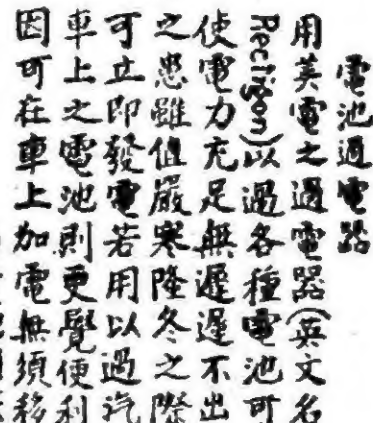 電池過電器
用美電之過電器(英文名
Rectigon)以過各種電池可
使電力充足無遲遲不出
之患雖值嚴寒隆冬之際
可立即發電若用以過汽
車上之電池則更覺便利
因可在車上加電無須移